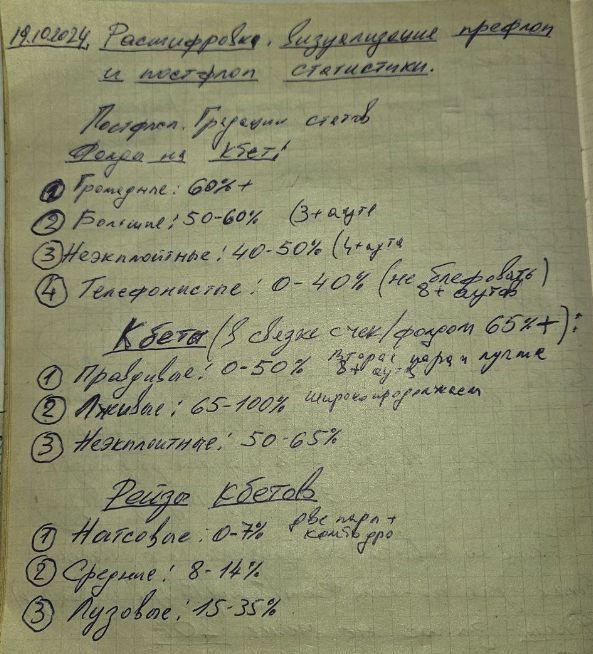 19.10.2024. Расшифровка. Визуализация префлоп
и постфлоп статистики.
Постфлоп. Градации статов
Фолда на Кбет:
① Громадные: 60%+
② Большие: 50-60% (3+аута
③ Неэкплоитные: 40-50% (4+аута
④ Телефонистые: 0-40% (не блефовать)
8+ аутов
Кбеты (в связке с чек/фолдом 65%+):
① Правдивые: 0-50% вторая пара и лучше
8+ аутов
② Лживые: 65-100% широко продолжаем
③ Неэкплоитные: 50-65%
Рейзы Кбетов
① Натсовые: 0-7% две пары +
комбодро
② Средние: 8-14%
③ Лузовые: 15-35%